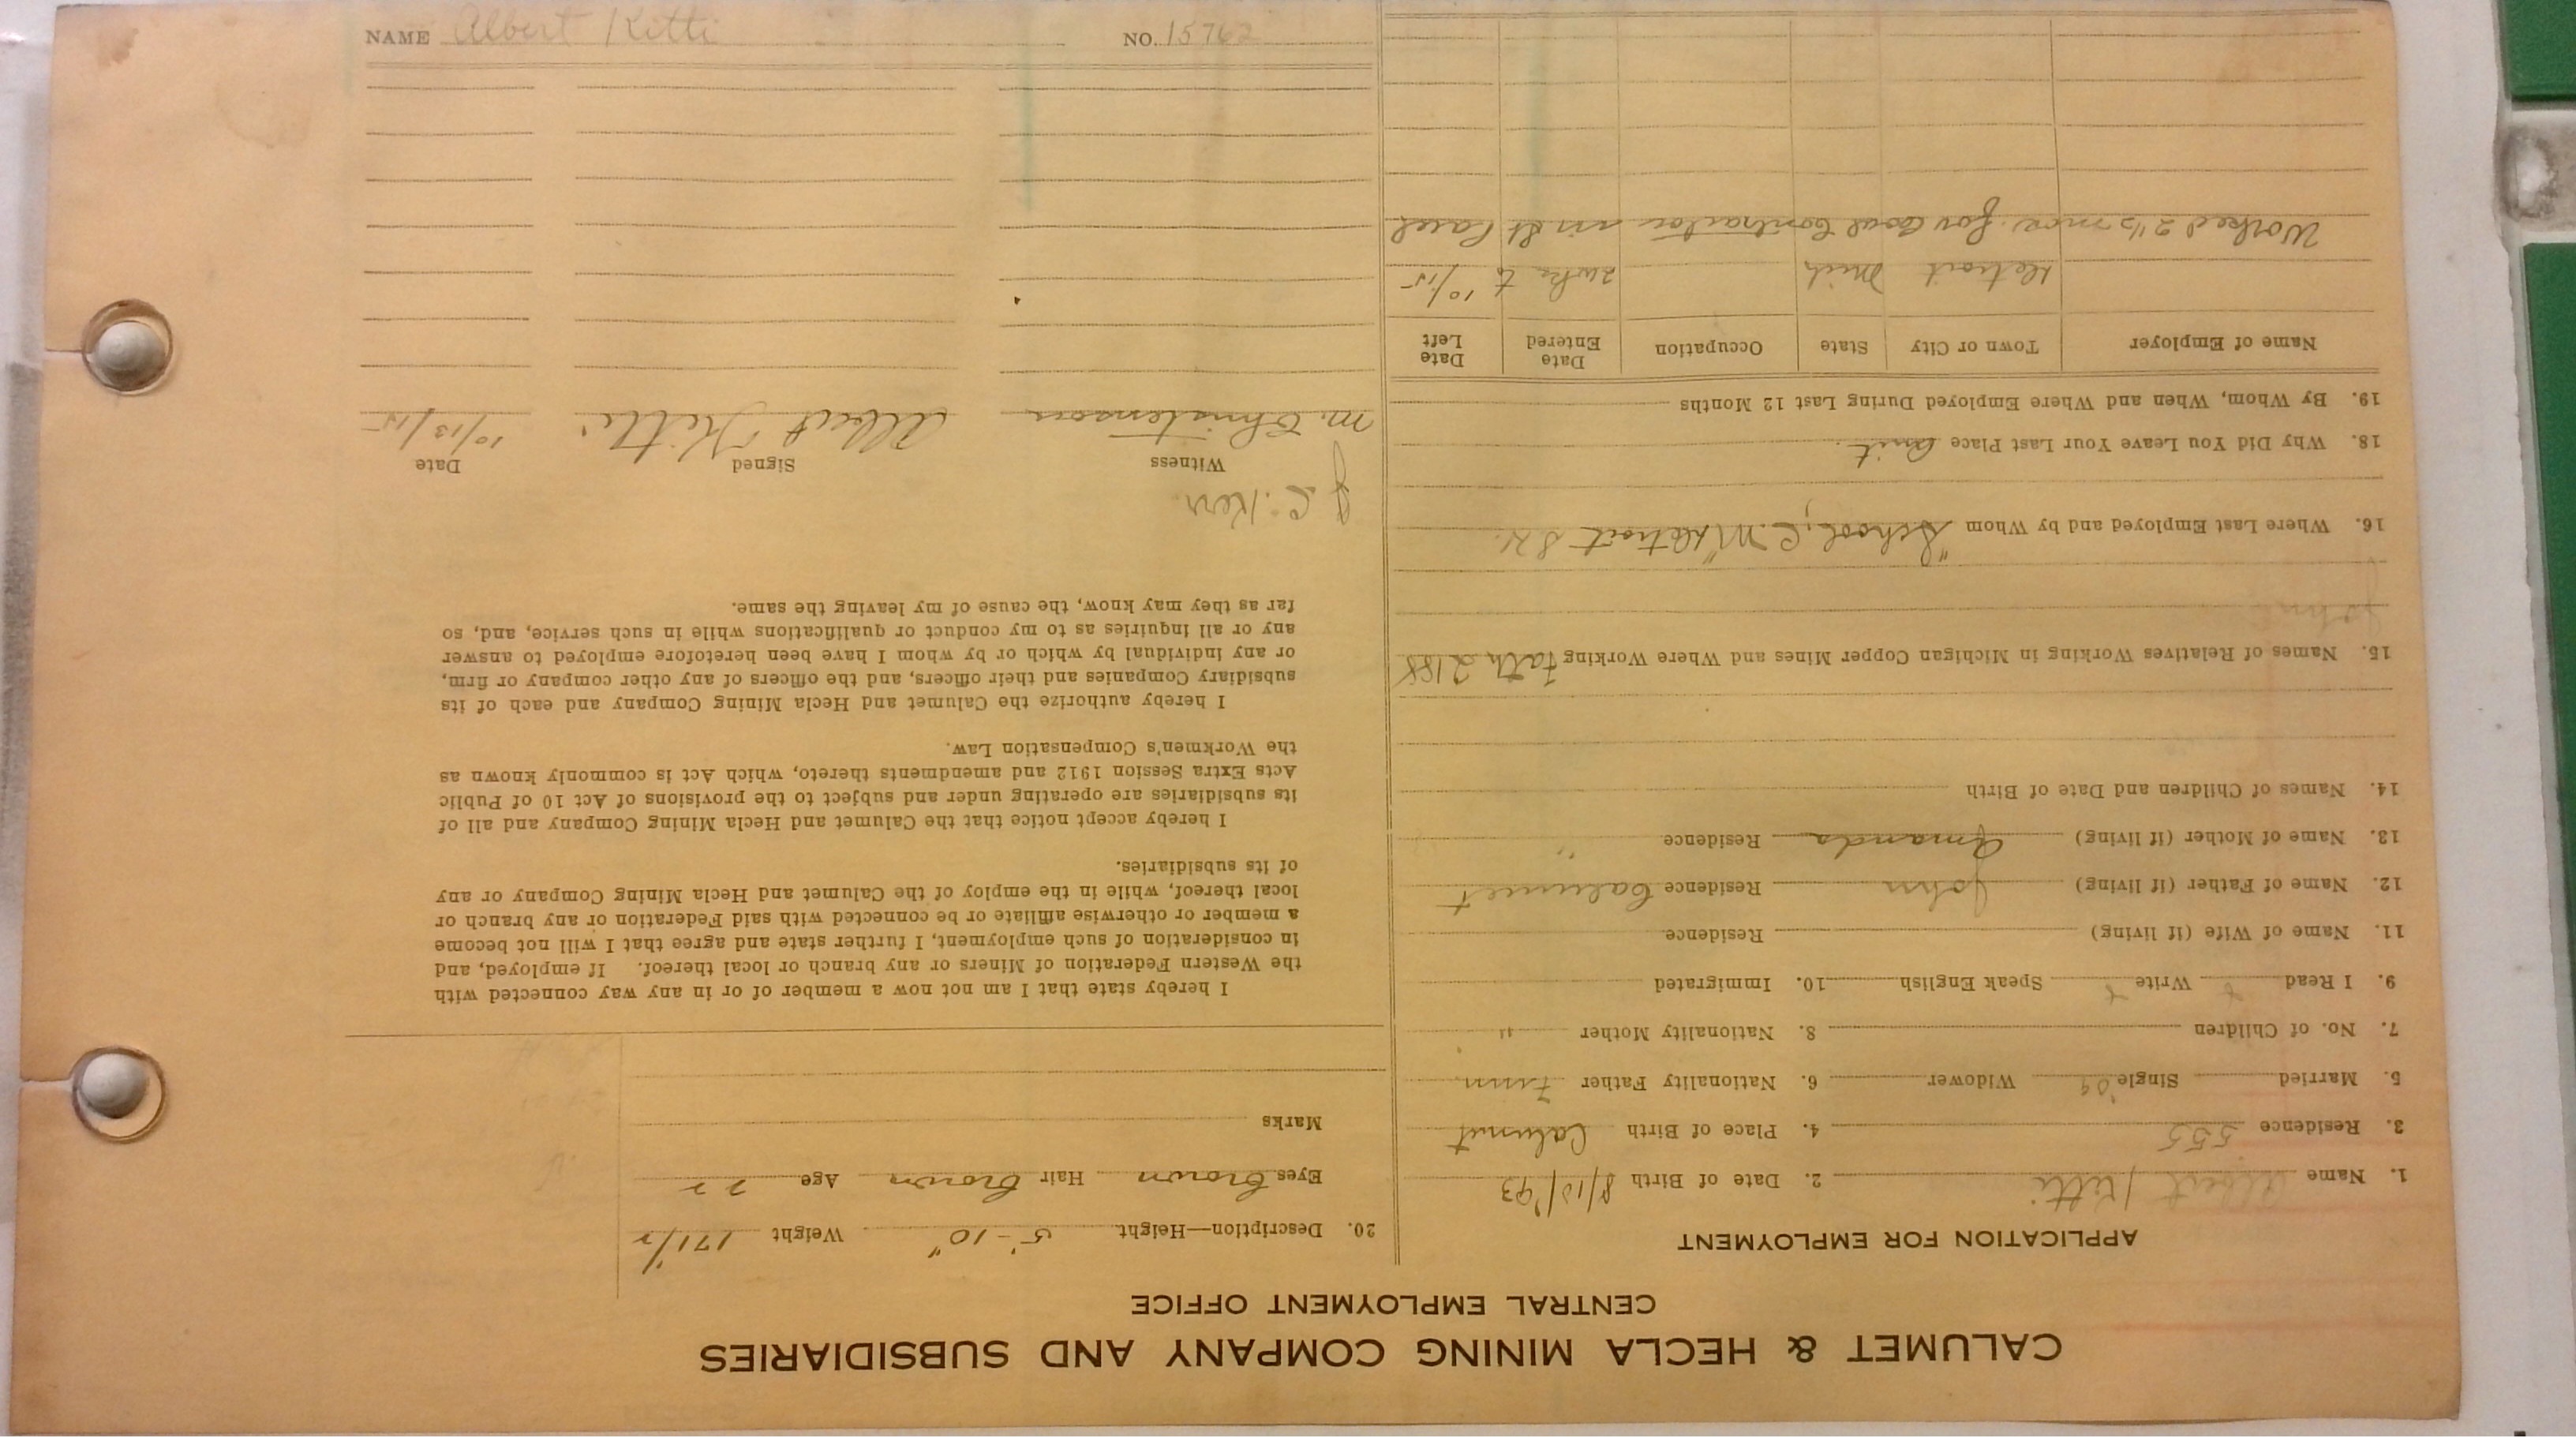 CALUMET & HECLA MINING COMPANY AND SUBSIDIARIES
CENTRAL EMPLOYMENT OFFICE
APPLICATION FOR EMPLOYMENT
1. Name Albert Kitti 2. Date of Birth 8/10/93
3. Residence 555 4. Place of Birth Calumet
5. Married Single Widower 6. Nationality Father Finn
7. No. of Children 8. Nationality Mother "
9. I Read Write Speak English 10. Immigrated
11. Name of Wife (if living) Residence
12. Name of Father (if living) John Residence Calumet
13. Name of Mother (if living) Amanda Residence "
14. Names of Children and Date of Birth
15. Names of Relatives Working in Michigan Copper Mines and Where Working Fath 2188
John
16. Where Last Employed and by Whom "School, C. M" Detroit
18. Why Did You Leave Your Last Place Quit
19. By Whom, When and Where Employed During Last 12 Months
Name of Employer Town or City State Occupation Date Entered Date Left
Detroit Mich 2 wks to 10/15
Worked 2 1/2 mos. for Local Contractor in
20. Description—Height 5'-10" Weight 171 1/2
Eyes Brown Hair Brown Age 22
Marks
I hereby state that I am not now a member of or in any way connected with
the Western Federation of Miners or any branch or local thereof. If employed, and
in consideration of such employment, I further state and agree that I will not become
a member or otherwise affiliate or be connected with said Federation or any branch or
local thereof, while in the employ of the Calumet and Hecla Mining Company or any
of its subsidiaries.
I hereby accept notice that the Calumet and Hecla Mining Company and all of
its subsidiaries are operating under and subject to the provisions of Act 10 of Public
Acts Extra Session 1912 and amendments thereto, which Act is commonly known as
the Workmen's Compensation Law.
I hereby authorize the Calumet and Hecla Mining Company and each of its
subsidiary Companies and their officers, and the officers of any other company or firm,
or any individual by which or by whom I have been heretofore employed to answer
any or all inquiries as to my conduct or qualifications while in such service, and, so
far as they may know, the cause of my leaving the same.
J. C. Kerr
Witness Signed Date
M. Christenson Albert Kitti 10/13/15
NAME Albert Kitti NO. 15762